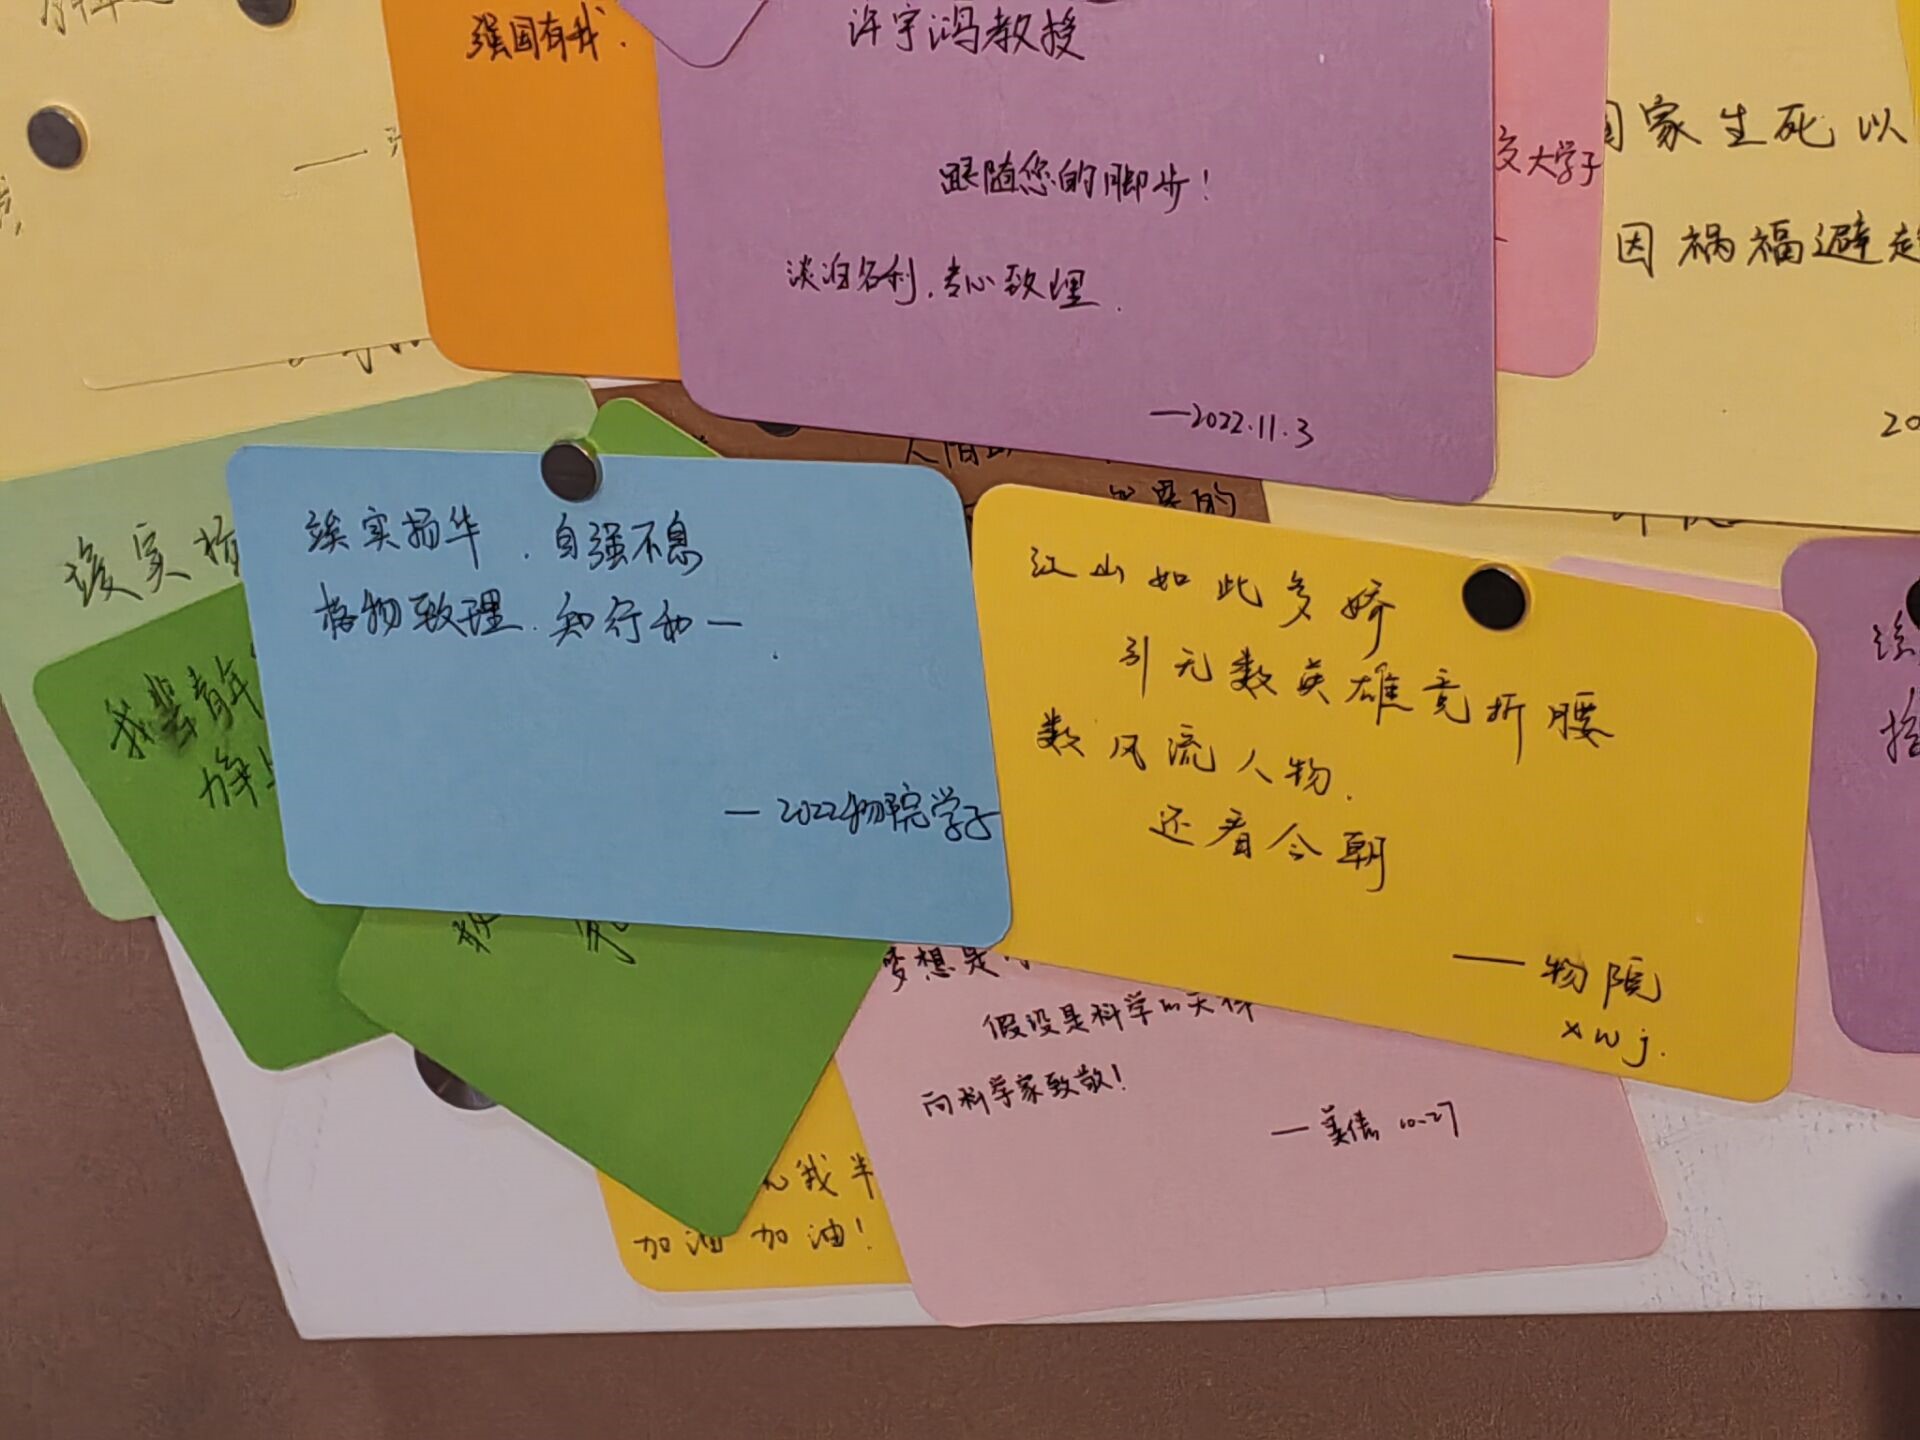 强国有我.
许宇鸿教授
跟随您的脚步!
淡泊名利.专心致理.
—2022.11.3
交大学子
家生死以
因祸福避趋
竢实扬华.自强不息
格物致理.知行和一.
—2022物院学子
江山如此多娇
引无数英雄竞折腰
数风流人物.
还看今朝
——物院
xwj.
竢实扬
我辈青年
梦想是
假设是科学的天梯
向科学家致敬!
—美倩 10.27
我半
加油 加油!